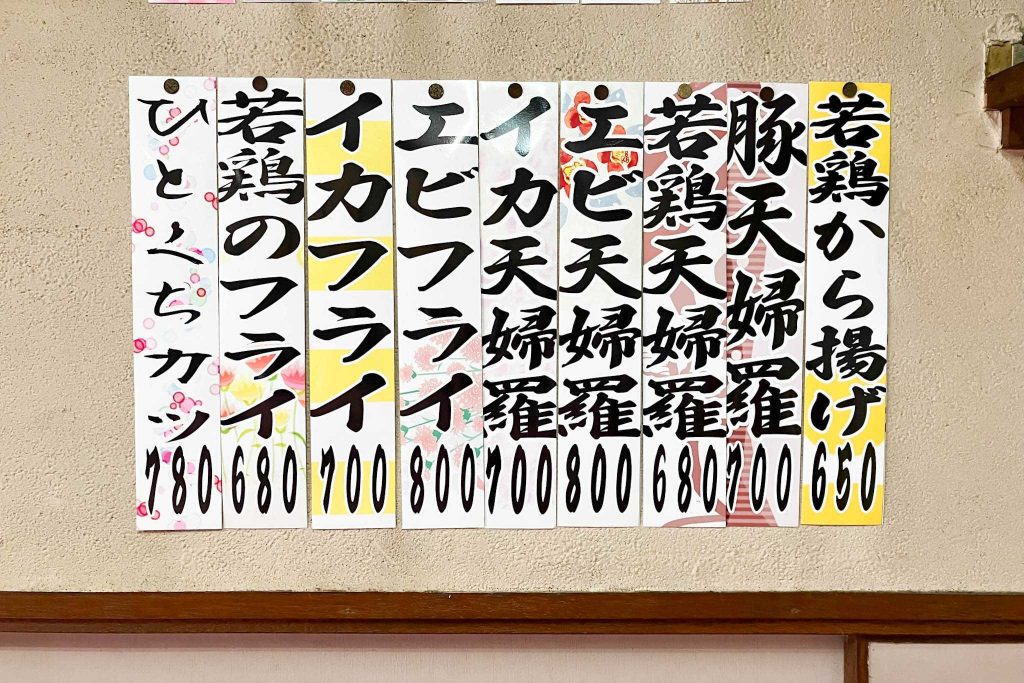 若鶏から揚げ 650
豚天婦羅 700
若鶏天婦羅 680
エビ天婦羅 800
イカ天婦羅 700
エビフライ 800
イカフライ 700
若鶏のフライ 680
ひとくちカツ 780